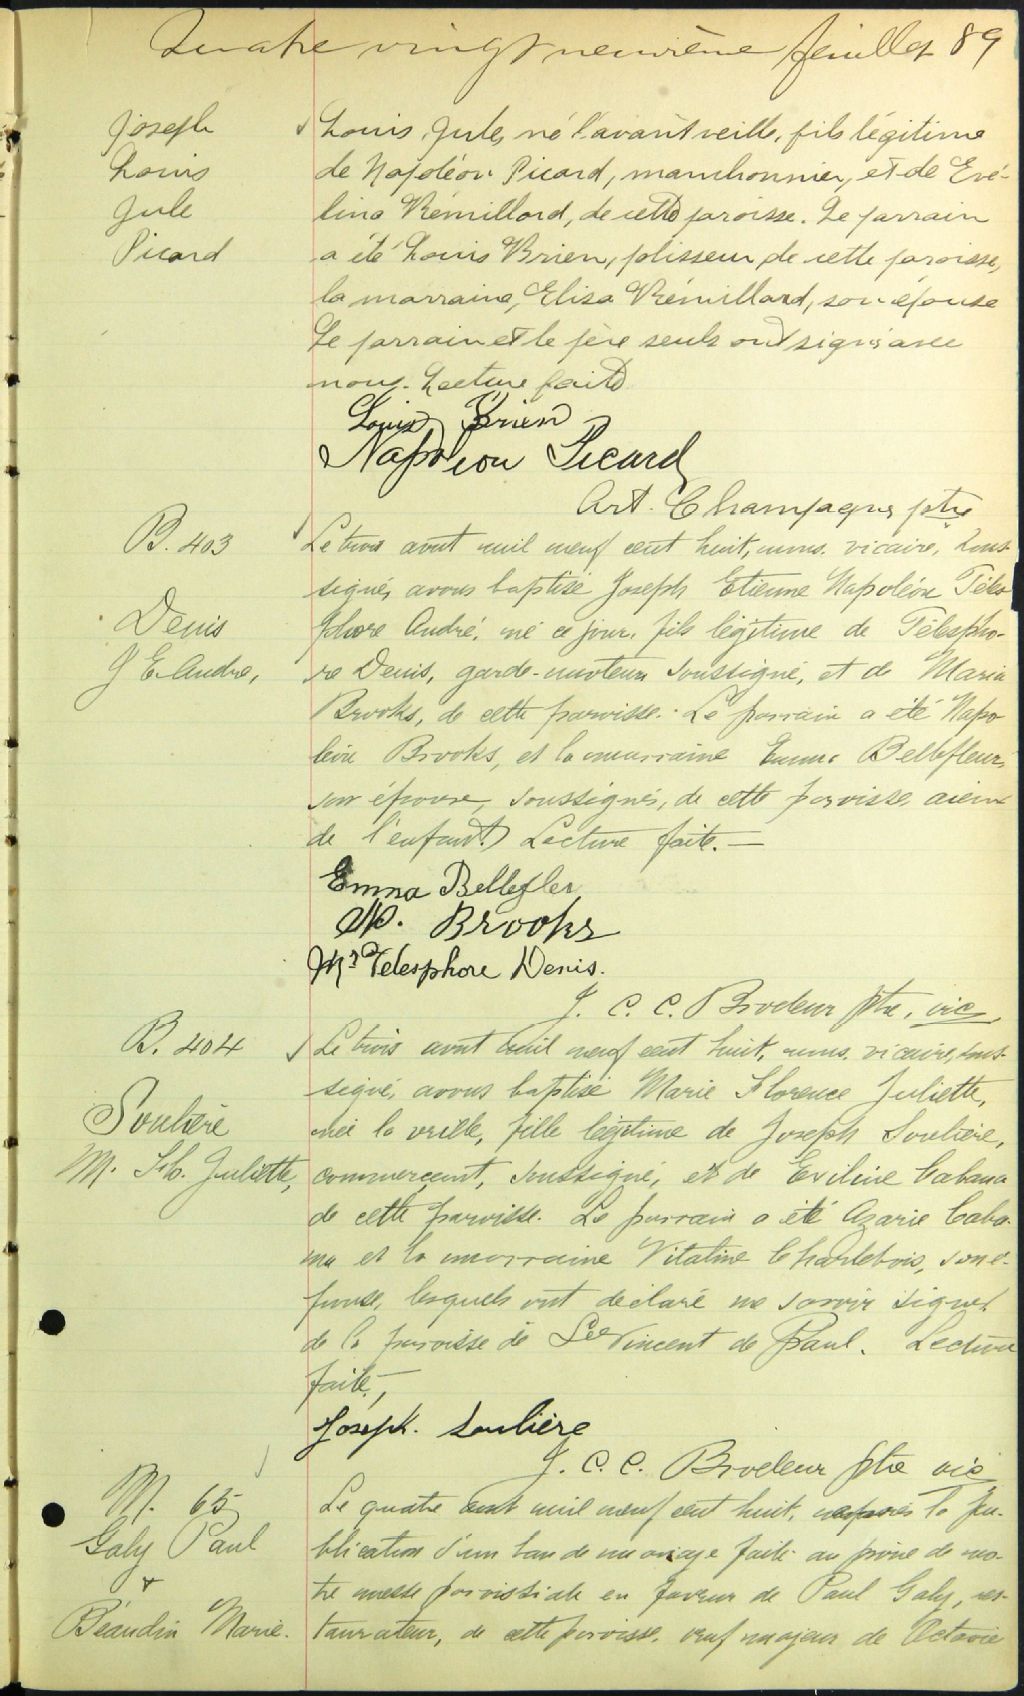 Quatre vingt neuvième feuillet 89
Joseph
Louis
Jule
Picard
Louis Jules, né l'avant veille, fils légitime
de Napoléon Picard, manchonnier, et de Evé-
lina Rémillard, de cette paroisse. Le parrain
a été Louis Brien, plisseur, de cette paroisse,
la marraine, Eliza Rémillard, son épouse
Le parrain et le père seuls ont signé avec
nous. Lecture faite
Louis Brien
Napoléon Picard
Art. Champagne ptre
B. 403
Denis
J E. André,
Le trois août mil neuf cent huit, nous, vicaire, sous-
signé, avons baptisé Joseph Etienne Napoléon Téles
phore André, né ce jour, fils légitime de Télespho-
re Denis, garde-moteur soussigné, et de Maria
Brooks, de cette paroisse. Le parrain a été Napo
léon Brooks, et la marraine Emma Bellefleur,
son épouse, soussignés, de cette paroisse, aïeux
de l'enfant. Lecture faite. —
Emma Bellefler
N. Brooks
Mr Telesphore Denis.
J. C. C. Brodeur ptre, vic
B. 404
Soulière
M. Juliette,
Le trois août mil neuf cent huit, nous, vicaire, sous-
signé, avons baptisé Marie Florence Juliette,
née la veille, fille légitime de Joseph Soulière,
commerçant, soussigné, et de Eviline Cabana
de cette paroisse. Le parrain a été Azarie Caba-
na et la marraine Vitaline Charlebois, son é-
pouse, lesquels ont déclaré ne savoir signer
de la paroisse de St Vincent de Paul. Lecture
faite,
Joseph. Soulière
J. C. C. Brodeur ptre vic
M. 65
Galy Paul
+
Béaudin Marie.
Le quatre août mil neuf cent huit, après la pu-
blication d'un ban de mariage faite au prône de no-
tre messe paroissiale en faveur de Paul Galy, res-
taurateur, de cette paroisse, veuf majeur de Octavie